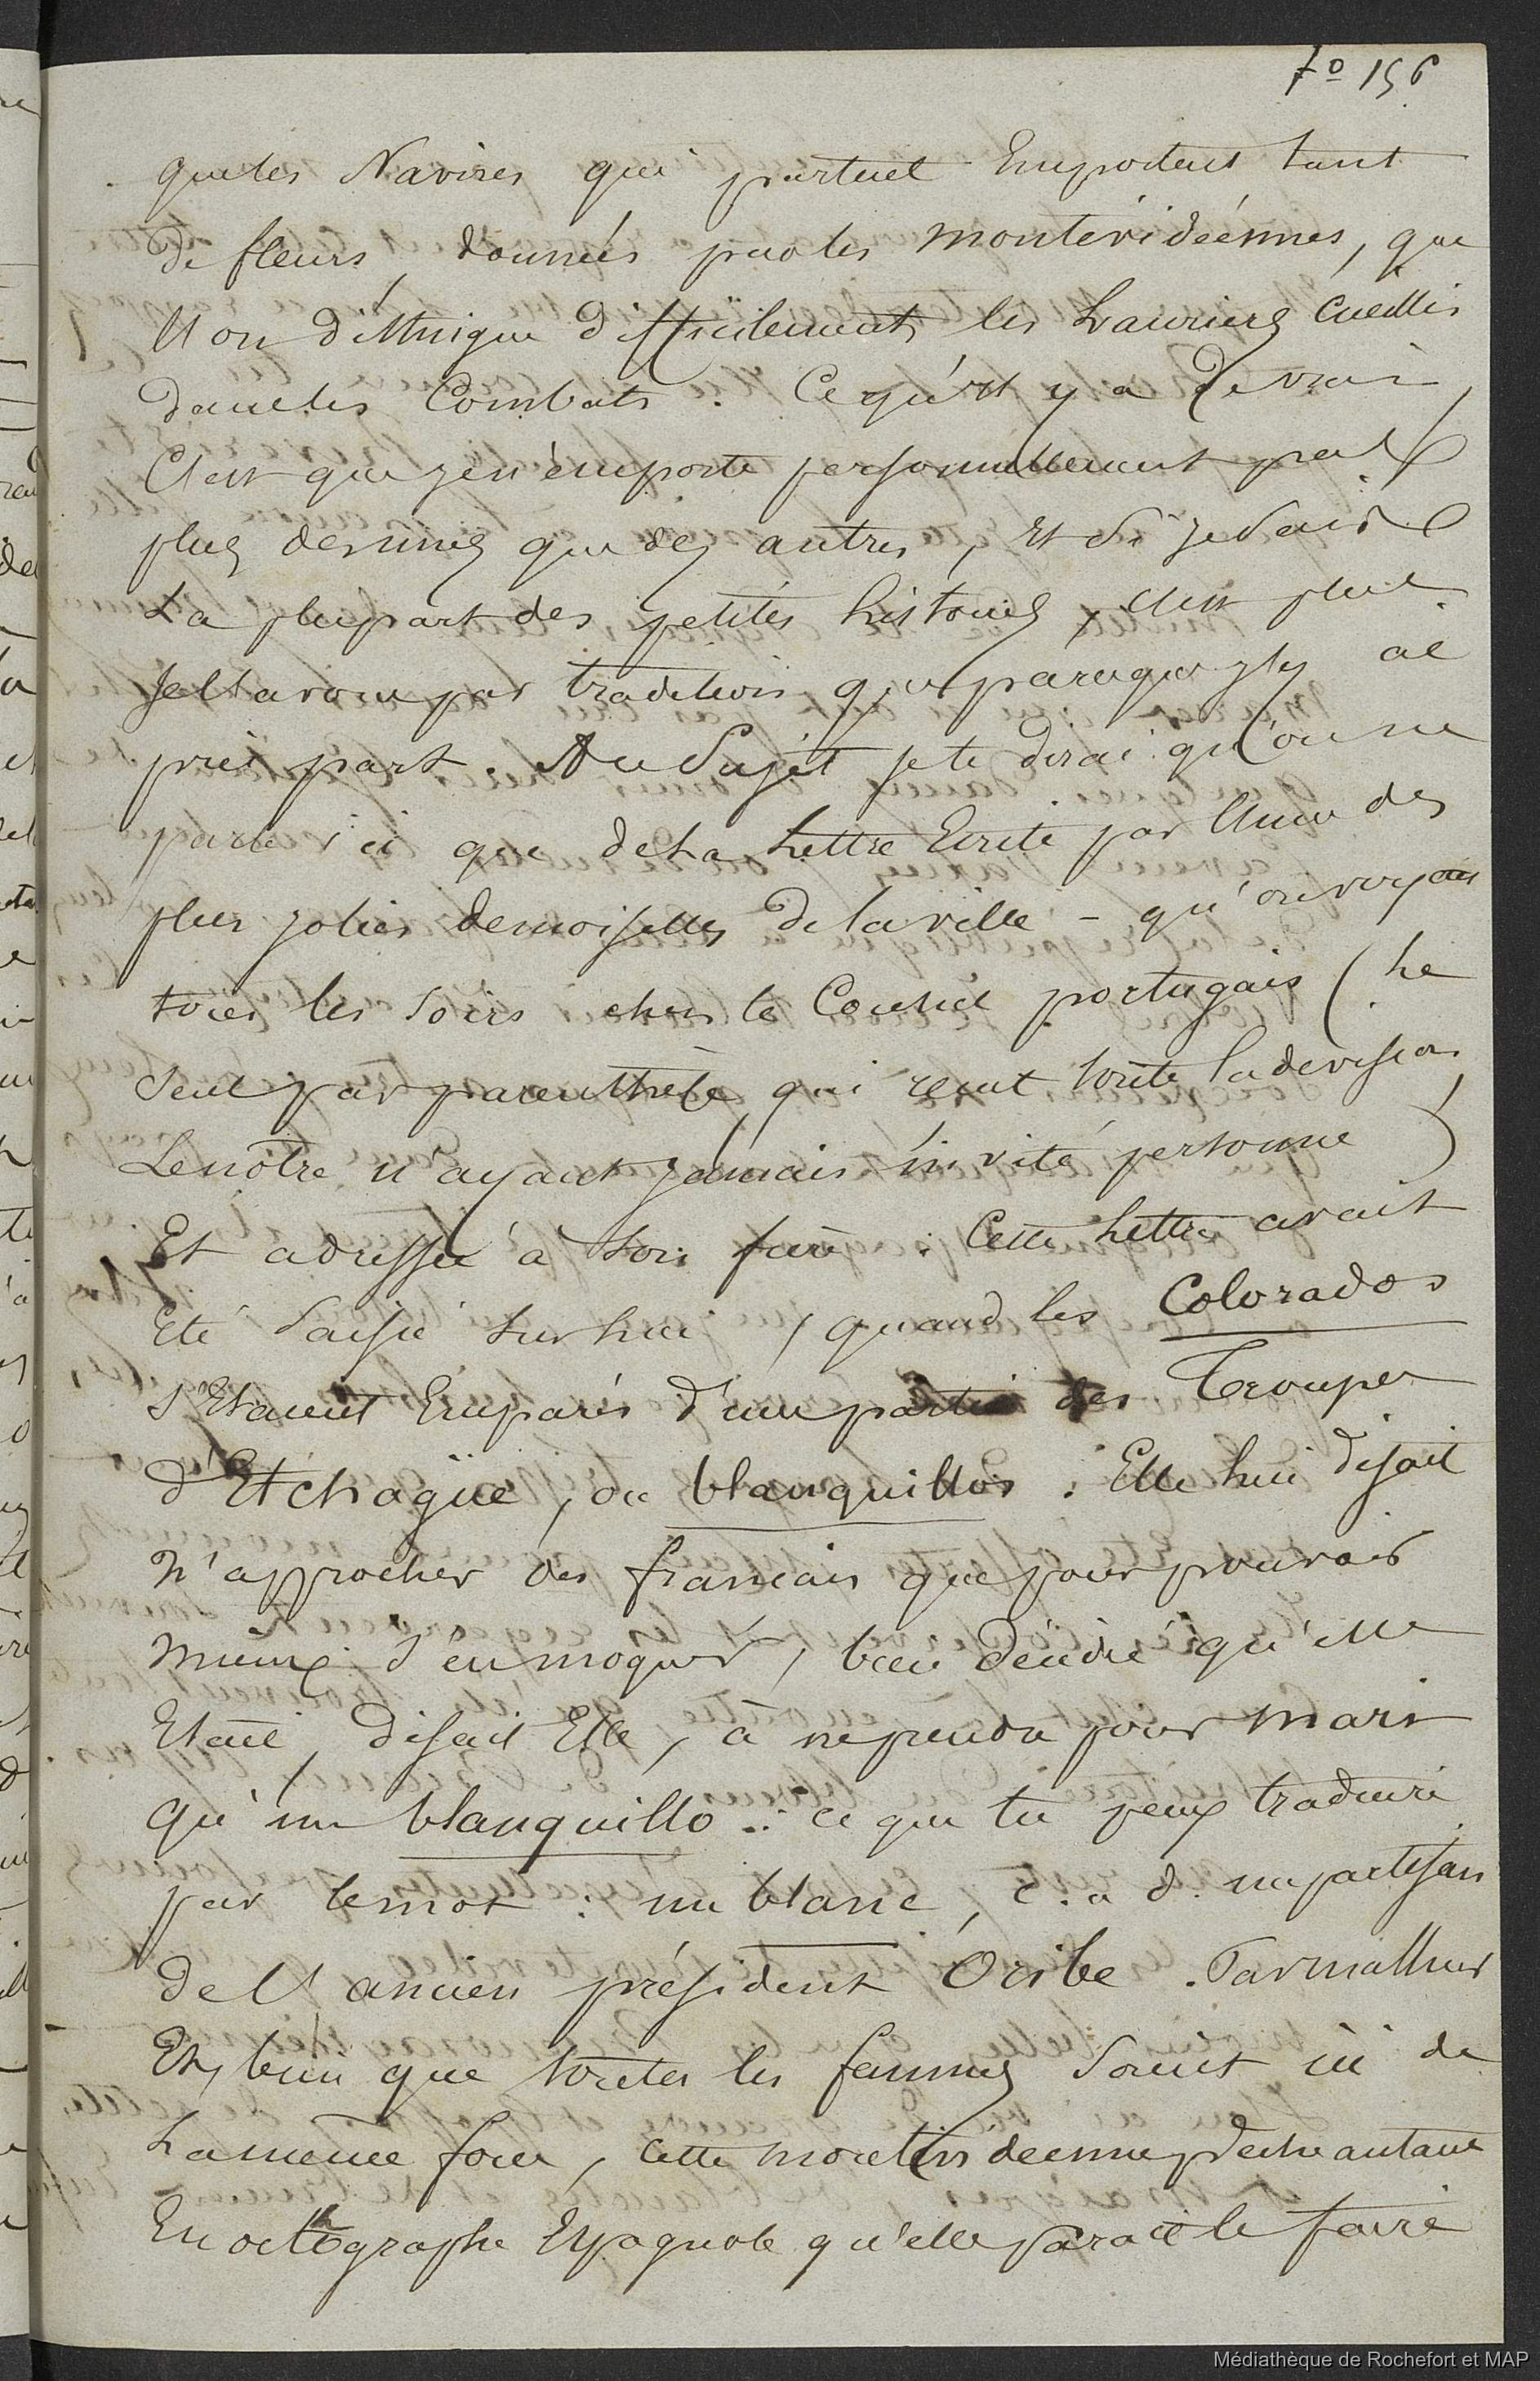 fo 156
que les Navires qui partent Emportent tant
de fleurs données par les montévidéennes, que
l'on distingue difficilement les Lauriers Cueillis
dans les Combats. Ce qu'il y a de vrai,
C'est que je n'emporte personnellement pas
plus des unes que des autres, et si je sais
La plupart des petites histoires, c'est plus
je l'avoue par tradition que parceque j'y ai
pris part. Au sujet je te dirai qu'on ne
parle ici que de La Lettre Ecrite par l'une des
plus jolies demoiselles de la ville - qu'on voyait
tous les soirs chez le Consul portugais (Le
seul par parenthèse qui recut toute la division,
Le nôtre n'ayant jamais invité personne)
Et adressée à son frère : Cette Lettre avait
Eté saisie sur Lui, quand les Colorados
s'Etaient Emparés d'une partie des Troupes
d'Etchagüe, ou blanquillos : Elle Lui disait
n'approcher des francais que pour pouvoir
mieux s'en moquer, bien décidé qu'elle
Etait, disait Elle, à ne prendre pour mari
qu'un blanquillo : ce que tu peux traduire
par le mot : un blanc, c. a d. un partisan
de l'ancien président Oribe. Par malheur
Et bien que toutes les femmes soient ici de
La même force, cette montévidéenne pèche autant
En octographe Espagnole qu'elle parait le faire
Médiathèque de Rochefort et MAP